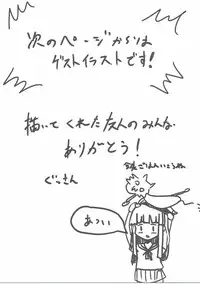 次のページからは
ゲストイラストです!
描いてくれた友人のみんな
ありがとう!
ぐっさん
あつい